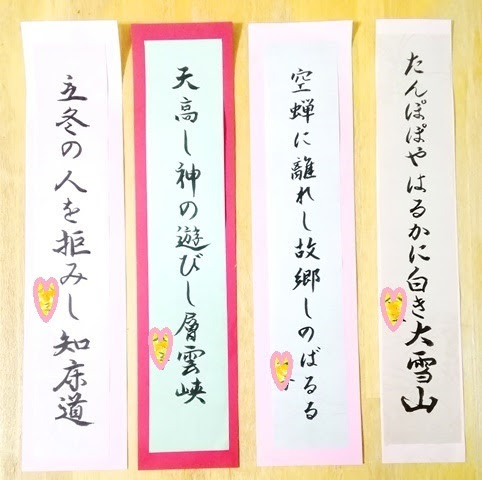 たんぽぽやはるかに白き大雪山
空蝉に離れし故郷しのばるる
天高し神の遊びし層雲峡
立冬の人を拒みし知床道